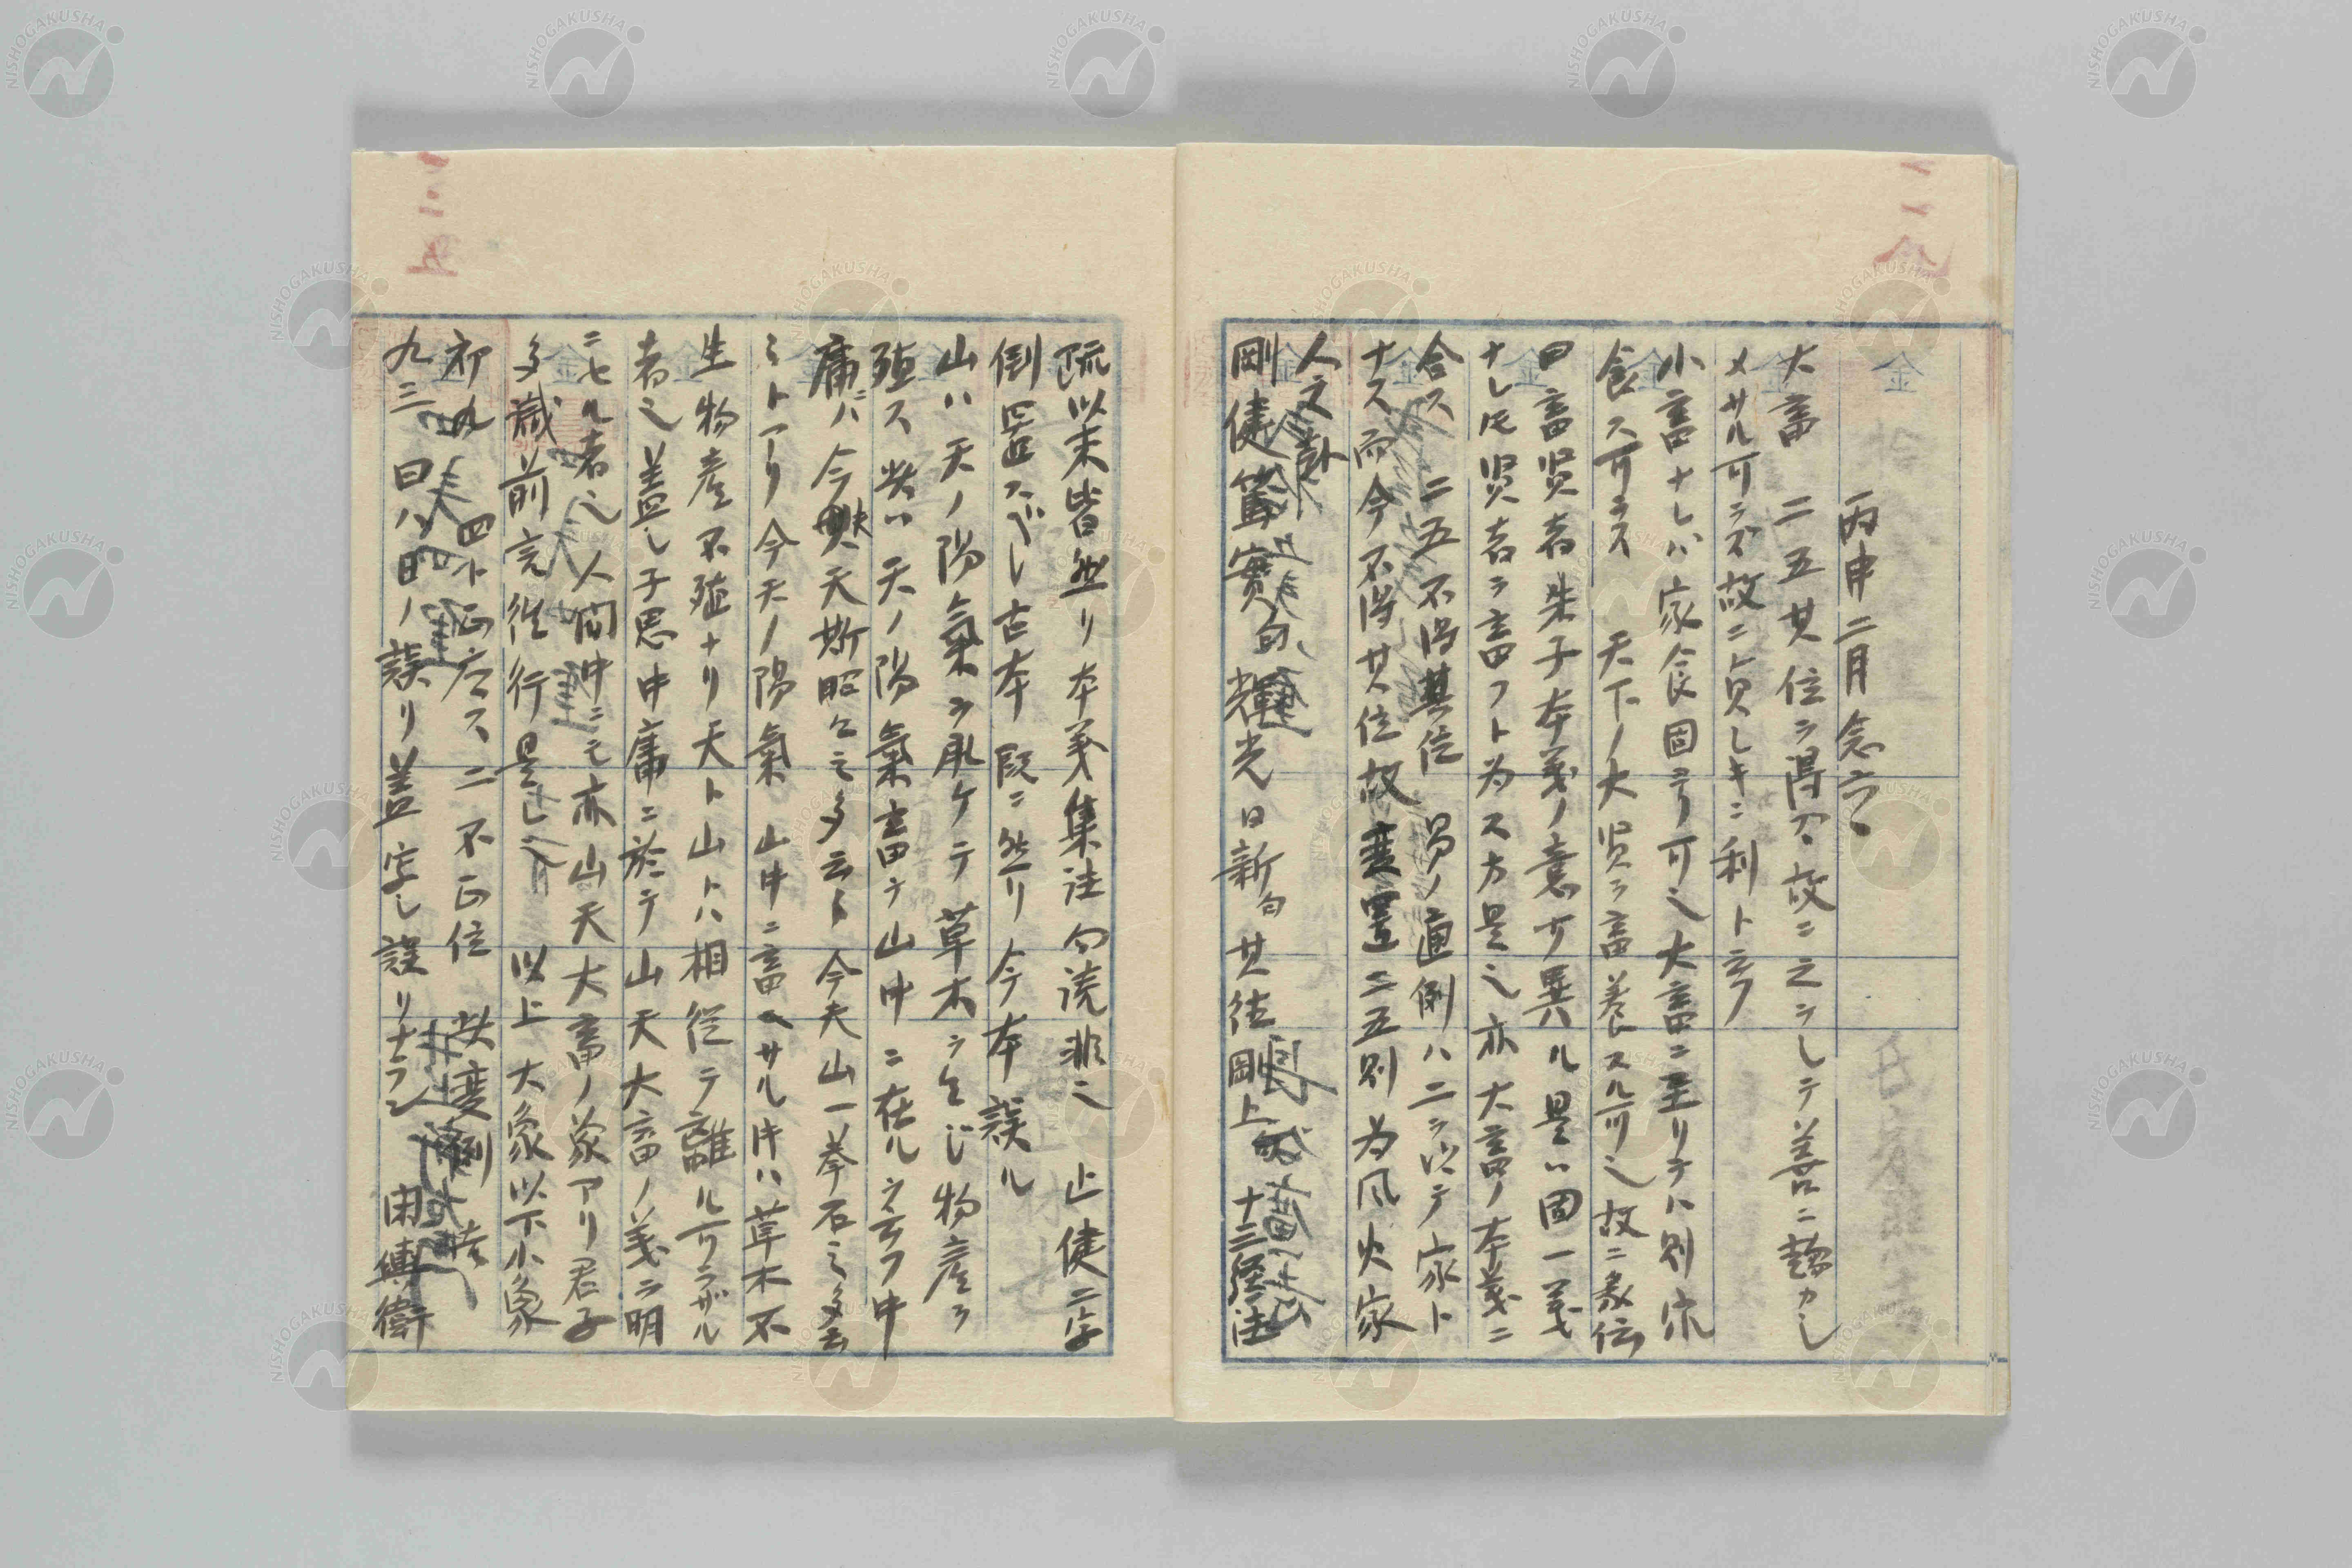 丙申二月念六
大畜 二五其位ヲ得ズ故ニ之ヲシテ善ニ趨カシ
メサル可ラズ故ニ貞シキニ利ト云フ
小畜ナレハ家食固ヨリ可也大畜ニ至リテハ別ニ家
食ス可ラス 天下ノ大賢ヲ畜養スル可也故ニ彖伝
曰畜賢者朱子本義ノ意サ異ル是ハ固一義
ナレ𪜈賢者ヲ畜フト為ス方是也亦大畜ノ本義ニ
合ス 二五不得其位 易ノ通例ハ二ヲ以テ家ト
ナス而今不得其位故変置二五別為風火家
人之卦
剛健篤實句輝光日新句其徳剛上 十三經注
疏以来皆然リ本義集註句読非也 止健二字
倒置スベシ古本既ニ然リ今本誤ル
山ハ天ノ陽氣ヲ承ケテ草木ヲ生じ物産ヲ
殖ス 天ノ陽氣畜テ山中ニ在ルヲ云フ中
庸ニ今夫天斯昭々之多云々今夫山一拳石之多云
々トアリ今天ノ陽氣山中ニ畜ヘサル時ハ草木不
生物産不殖ナリ天ト山トハ相従テ離ル可ラザル
者也蓋し子思中庸ニ於テ山天大畜ノ義ヲ明
ニセル者也人間中ニモ亦山天大畜ノ象アリ君子
多識前言往行是也 以上大象以下小象
初九 四ト正応ス 二不正位 故変例
九三 曰ハ日ノ誤リ蓋字し誤リナラン 閑輿衛